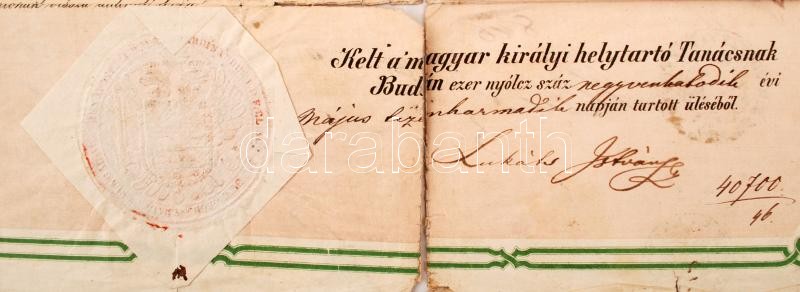 Kelt a magyar királyi helytartó Tanácsnak
Budán ezer nyólcz száz negyvenhatodik évi
Május tizenharmadik napján tartott üléséből.
Lukáts István
40700
46.
darabanth